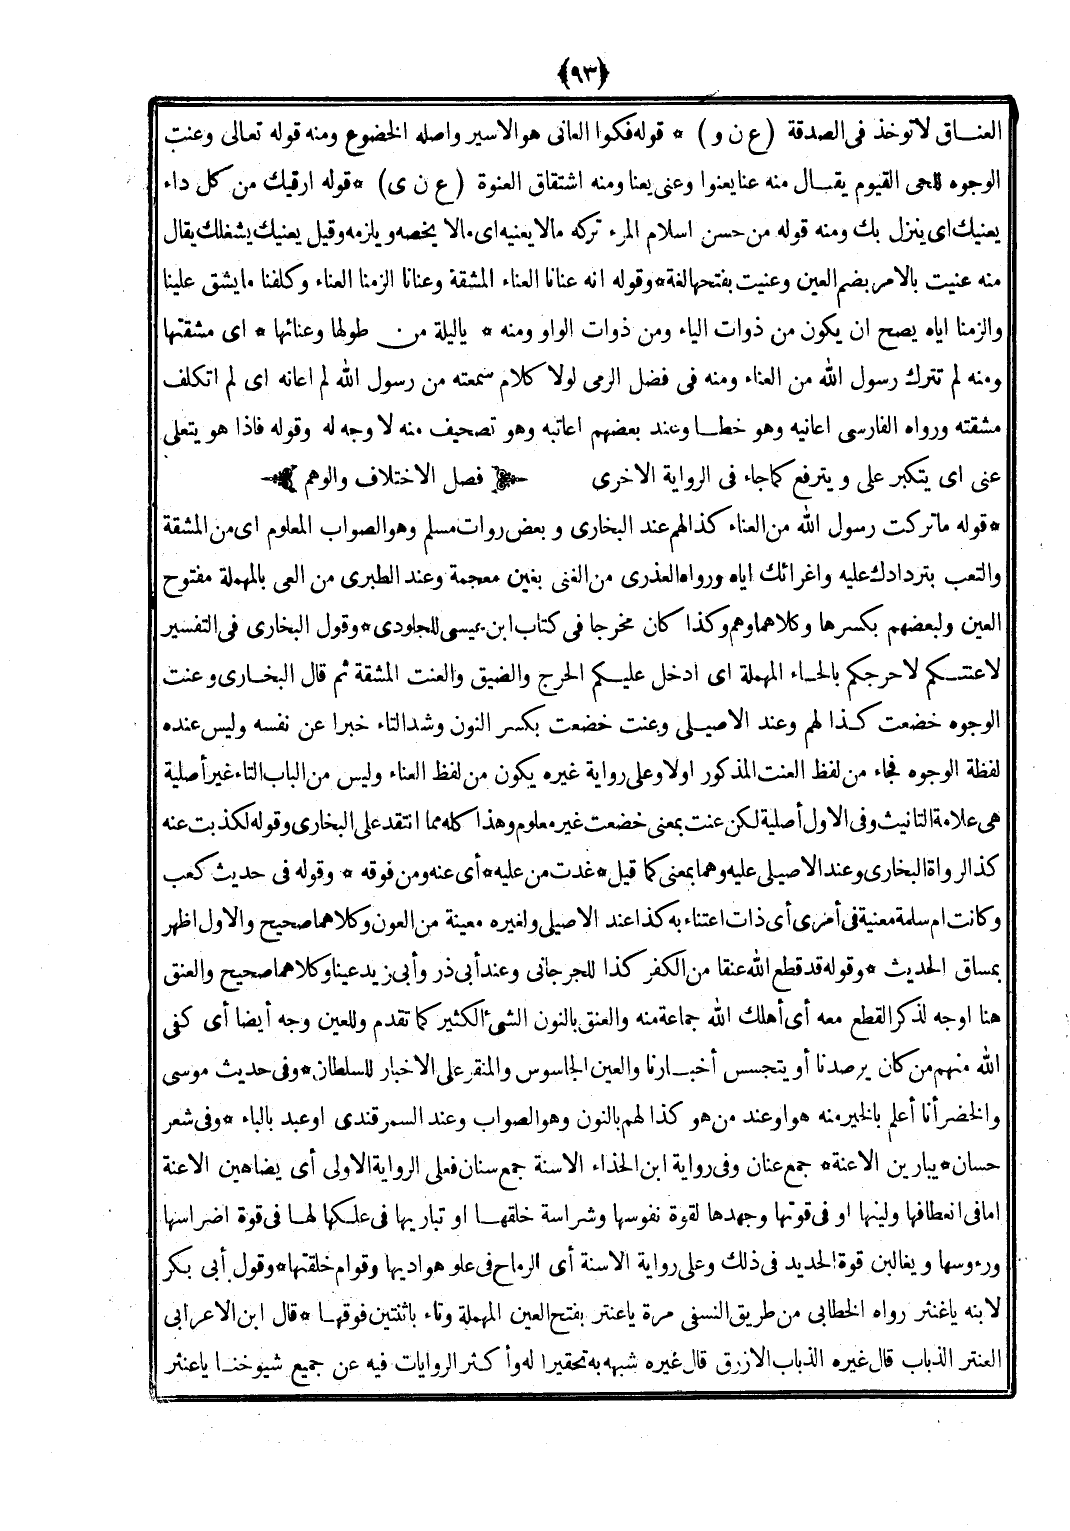 ﴿٩٣﴾
العنـاق لاتوخذ فى الصدقة (ع ن و) * قوله فكوا العانى هو الاسير واصله الخضوع ومنه قوله تعالى وعنت
الوجوه للحى القيوم يقـال منه عنا يعنوا وعنى يعنا ومنه اشتقاق العنوة (ع ن ى) *قوله ارقيك من كل داء
يعنيك اى ينزل بك ومنه قوله من حسن اسلام المرء تركه مالا يعنيه اى مالا يخصه ويلزمه وقيل يعنيك يشغلك يقال
منه عنيت بالامر بضم العين وعنيت بفتحها لغة*وقوله انه عنانا العناء المشقة وعنانا الزمنا العناء وكلفنا مايشق علينا
والزمنا اياه يصح ان يكون من ذوات الياء ومن ذوات الواو ومنه * ياليلة من طولها وعنائها * اى مشقتها
ومنه لم تترك رسول الله من العناء ومنه فى فضل الرمى لولا كلام سمعته من رسول الله لم اعانه اى لم اتكلف
مشقته ورواه الفارسى اعانيه وهو خطـا وعند بعضهم اعاتبه وهو تصحيف منه لا وجه له وقوله فاذا هو يتعلى
عنى اى يتكبر على ويترفع كماجاء فى الرواية الاخرى ﴿ فصل الاختلاف والوهم ﴾
*قوله ماتركت رسول الله من العناء كذالهم عند البخارى و بعض روات مسلم وهو الصواب المعلوم اى من المشقة
والتعب بتردادك عليه واغرائك اياه ورواه العذرى من الغنى بغين معجمة وعند الطبرى من العى بالمهملة مفتوح
العين ولبعضهم بكسرها وكلاهما وهم وكذا كان مخرجا فى كتاب ابن عيسى للجلودى*وقول البخارى فى التفسير
لاعنتـكم لاحرجكم بالحـاء المهملة اى ادخل عليـكم الحرج والضيق والعنت المشقة ثم قال البخـارى وعنت
الوجوه خضعت كـذا لهم وعند الاصيـلى وعنت خضعت بكسر النون وشد التاء خبرا عن نفسه وليس عنده
لفظة الوجوه فجاء من لفظ العنت المذكور اولا وعلى رواية غيره يكون من لفظ العناء وليس من الباب التاء غير أصلية
هى علامة التانيث وفى الاول أصلية لكن عنت بمعنى خضعت غير معلوم وهذا كله مما انتقد على البخارى وقوله لكذبت عنه
كذا لرواة البخارى وعند الاصيلى عليه وهما بمعنى كما قيل*غدت من عليه*أى عنه ومن فوقه * وقوله فى حديث كعب
وكانت ام سلمة معنية فى أمرى أى ذات اعتناء به كذا عند الاصيلى ولغيره معينة من العون وكلاهما صحيح والاول اظهر
بمساق الحديث *وقوله قد قطع الله عنقا من الكفر كذا للجرجانى وعند أبى ذر وأبى زيد عينا وكلاهما صحيح والعنق
هنا اوجه لذكر القطع معه أى أهلك الله جماعة منه والعنق بالنون الشئ الكثير كما تقدم وللعين وجه أيضا أى كفى
الله منهم من كان يرصدنا أو يتجسس أخبـارنا والعين الجاسوس والمنقر على الاخبار للسلطان*وفى حديث موسى
والخضر أنا أعلم بالخير منه هو او عند من هو كذا لهم بالنون وهو الصواب وعند السمرقندى او عبد بالباء *وفى شعر
حسان*يبارين الاعنة* جمع عنان وفى رواية ابن الحذاء الاسنة جمع سنان فعلى الرواية الاولى أى يضاهين الاعنة
امافى انعطافها ولينها او فى قوتها وجهدها لقوة نفوسها وشراسة خلقهـا او تباريها فى علـكها لهـا فى قوة اضراسها
ورءوسها ويغالبن قوة الحديد فى ذلك وعلى رواية الاسنة أى الرماح فى علو هواديها وقوام خلقتها*وقول أبى بكر
لابنه ياغنثر رواه الخطابى من طريق النسفى مرة ياعنتر بفتح العين المهملة وتاء باثنتين فوقهـا *قال ابن الاعرابى
العنتر الذباب قال غيره الذباب الازرق قال غيره شبهه به تحقيرا له وأكثر الروايات فيه عن جميع شيوخنـا ياغنثر